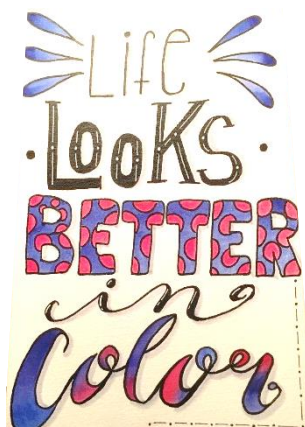 Life
LOOKS
BETTER
in
Color